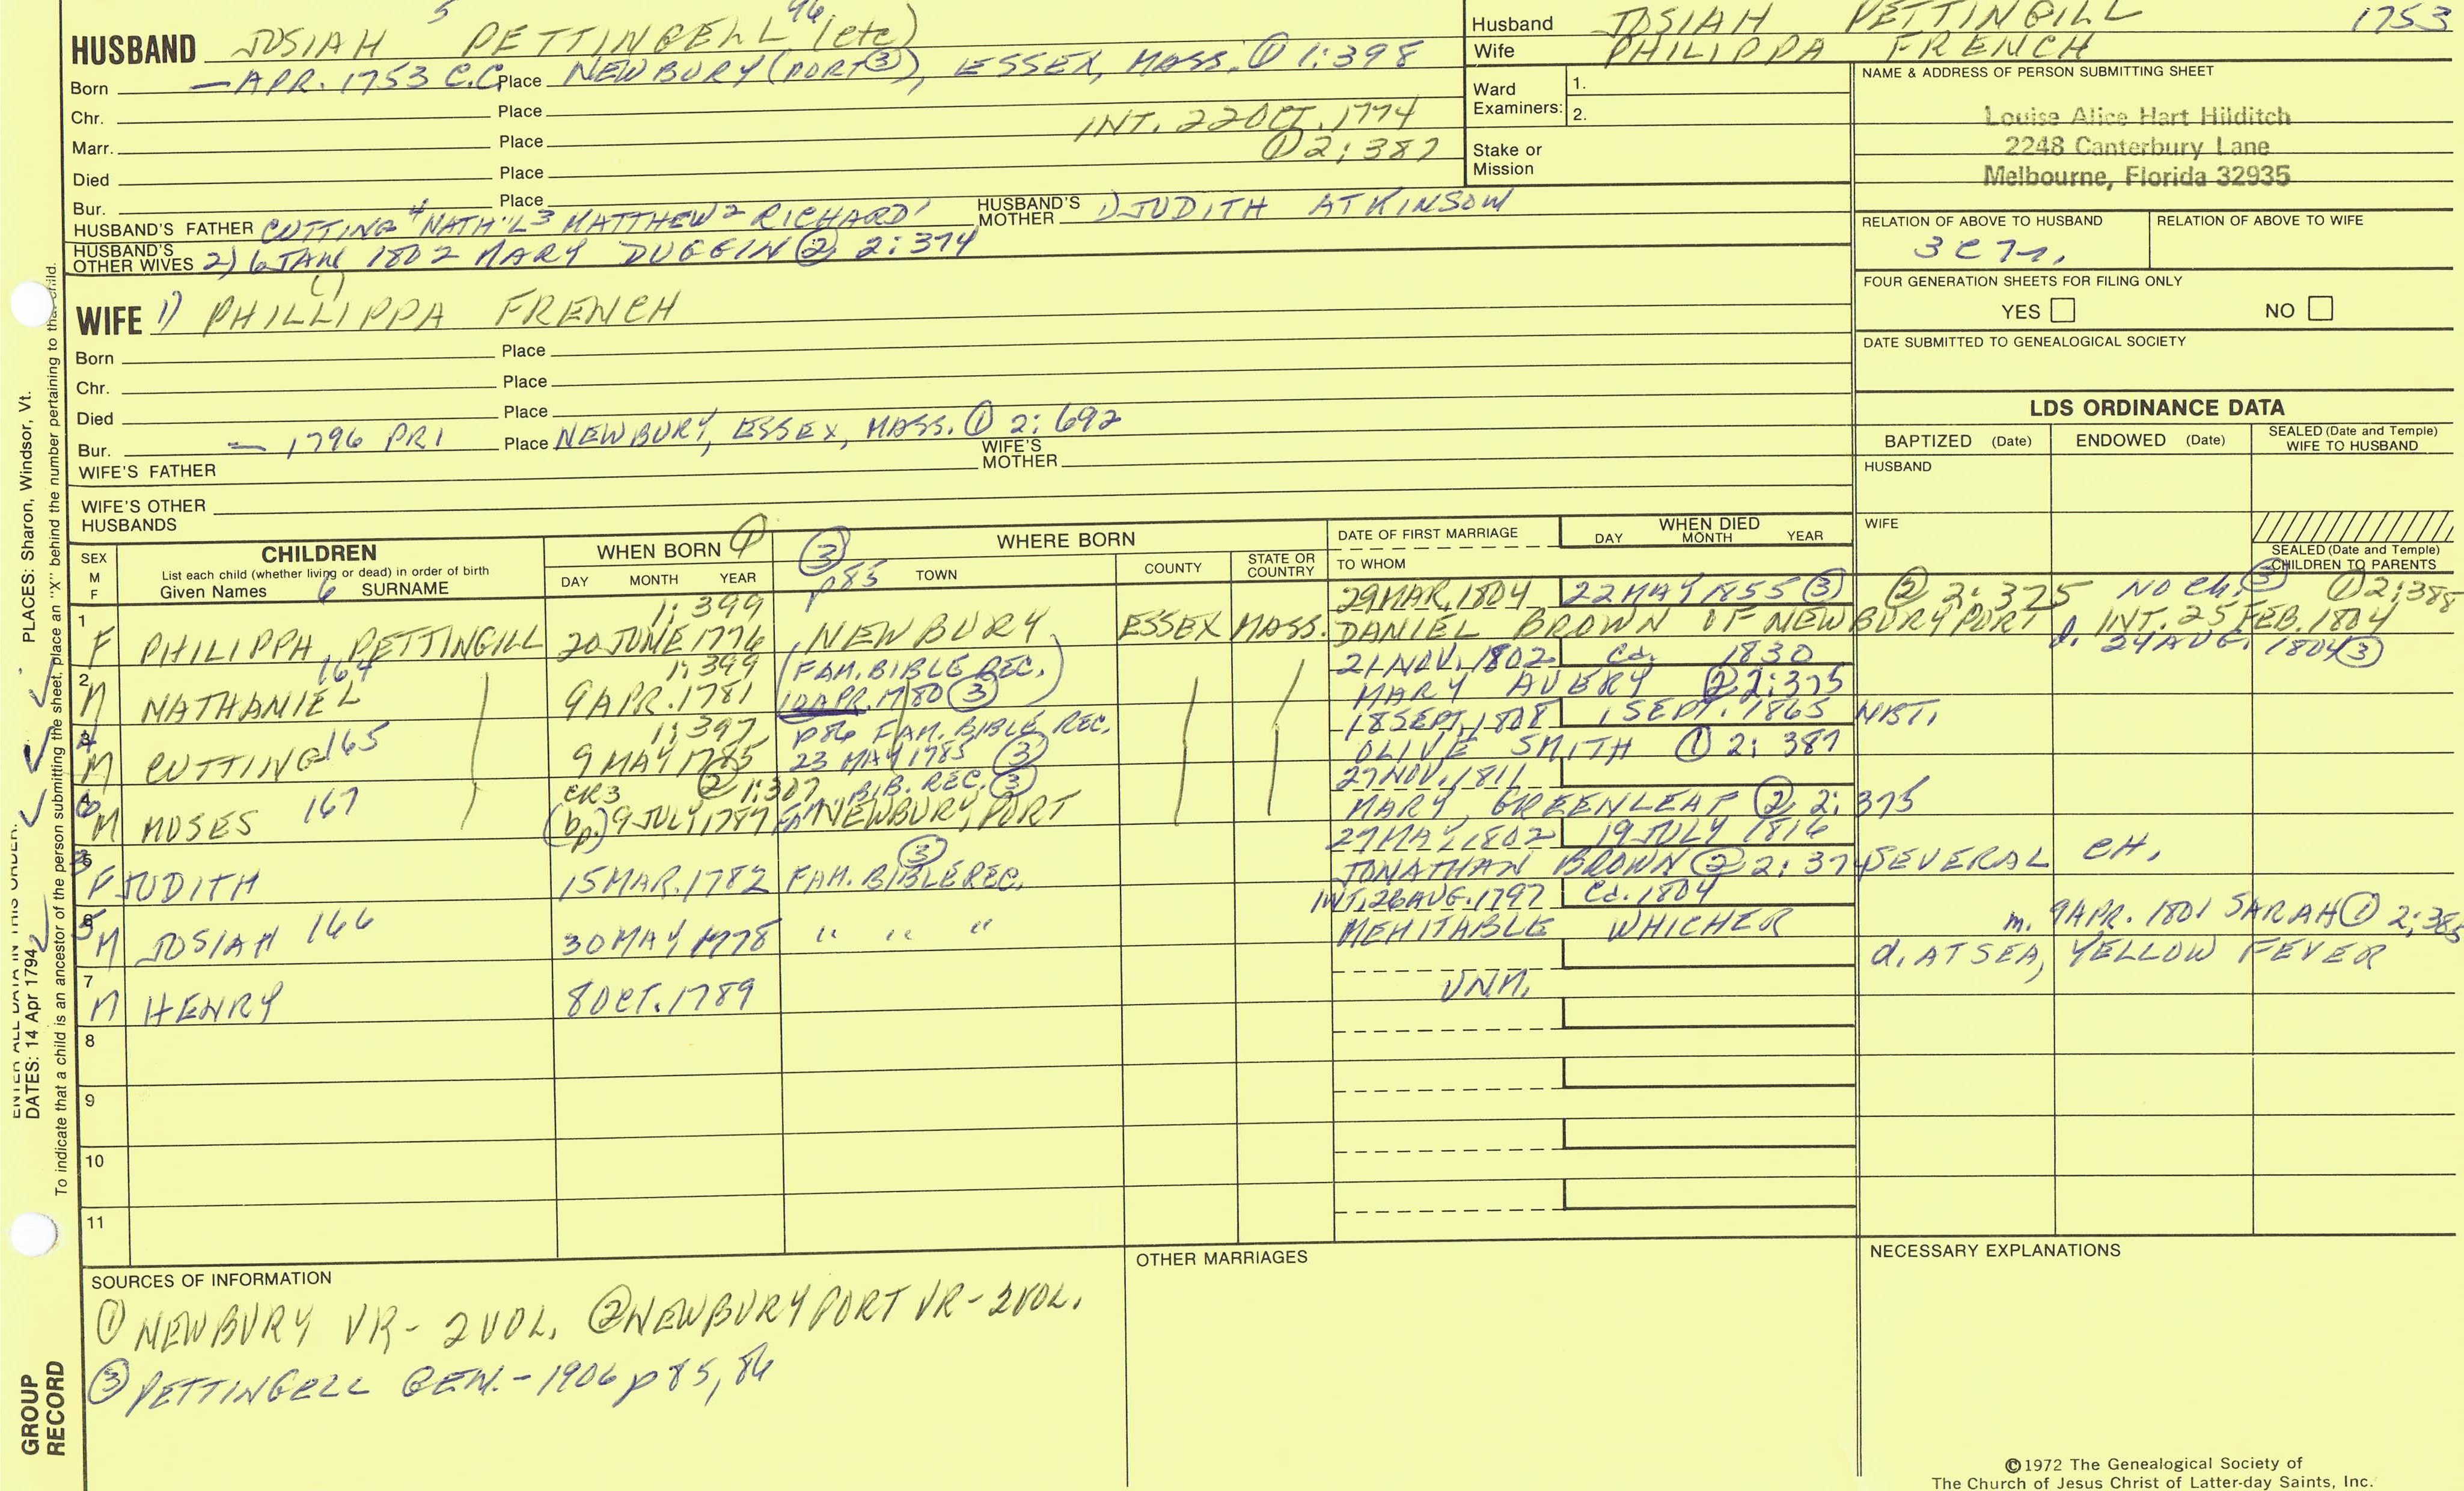 5 96
HUSBAND JOSIAH PETTINGELL (etc)
Born — APR. 1753 C.C. Place NEWBURY (PORT ③), ESSEX, MASS. ① 1:398
Chr. Place
INT. 22 OCT. 1774
Marr. Place ① 2:387
Died Place
Bur. Place
HUSBAND'S FATHER CUTTING 4 NATH'L 3 MATTHEW 2 RICHARD 1 HUSBAND'S MOTHER 1) JUDITH ATKINSON
HUSBAND'S OTHER WIVES 2) 6 JAN 1802 MARY DUGGIN ② 2:374
Husband JOSIAH PETTINGILL 1753
Wife PHILIPPA FRENCH
Ward Examiners: 1.
2.
Stake or Mission
NAME & ADDRESS OF PERSON SUBMITTING SHEET
Louise Alice Hart Hilditch
2248 Canterbury Lane
Melbourne, Florida 32935
RELATION OF ABOVE TO HUSBAND RELATION OF ABOVE TO WIFE
FOUR GENERATION SHEETS FOR FILING ONLY
YES NO
DATE SUBMITTED TO GENEALOGICAL SOCIETY
(L)
WIFE 1) PHILLIPPA FRENCH
Born Place
Chr. Place
Died Place
Bur. — 1796 PR1 Place NEWBURY, ESSEX, MASS. ① 2:692
WIFE'S FATHER WIFE'S MOTHER
WIFE'S OTHER HUSBANDS
LDS ORDINANCE DATA
BAPTIZED (Date) ENDOWED (Date) SEALED (Date and Temple) WIFE TO HUSBAND
HUSBAND
WIFE
SEALED (Date and Temple) CHILDREN TO PARENTS
SEX M F CHILDREN WHEN BORN ① ③ p85 WHERE BORN DATE OF FIRST MARRIAGE WHEN DIED
List each child (whether living or dead) in order of birth
Given Names 6 SURNAME DAY MONTH YEAR TOWN COUNTY STATE OR COUNTRY TO WHOM DAY MONTH YEAR
1:399 29 MAR. 1804 22 MAY 1855 ③ ② 2:375 NO CH. ③ ① 2:388
1 F PHILIPPA PETTINGILL 20 JUNE 1776 NEWBURY ESSEX MASS. DANIEL BROWN OF NEWBURYPORT INT. 25 FEB. 1804
d. 24 AUG. 1804 ③
164 1:399 (FAM. BIBLE REC. 21 NOV. 1802 Cd. 1830
2 M NATHANIEL 9 APR. 1781 10 APR. 1780 ③) MARY AVERY ② 2:375
165 1:397 p86 FAM. BIBLE REC. 18 SEPT. 1808 1 SEPT. 1865 NBT.
4 M CUTTING 9 MAY 1785 23 MAY 1785 ③ OLIVE SMITH ① 2:387
167 CR3 ② 1:307 BIB. REC. ③ 27 NOV. 1811
6 M MOSES (bp.) 9 JULY 1787 NEWBURYPORT MARY GREENLEAF ② 2:375
③ 27 MAY 1802 19 JULY 1816
3 F JUDITH 15 MAR. 1782 FAM. BIBLE REC. JONATHAN BROWN ② 2:374 SEVERAL CH.
166 INT. 26 AUG. 1797 Cd. 1804
5 M JOSIAH 30 MAY 1778 " " " MEHITABLE WHICHER m. 9 APR. 1801 SARAH ① 2:385
d. AT SEA, YELLOW FEVER
7 M HENRY 8 OCT. 1789 UNM.
8
9
10
11
SOURCES OF INFORMATION
① NEWBURY VR - 2 VOL. ② NEWBURYPORT VR - 2 VOL.
③ PETTINGELL GEN. - 1906 p 85, 86
OTHER MARRIAGES
NECESSARY EXPLANATIONS
©1972 The Genealogical Society of
The Church of Jesus Christ of Latter-day Saints, Inc.
PLACES: Sharon, Windsor, Vt.
ENTER ALL DATA IN THIS ORDER:
DATES: 14 Apr 1794
To indicate that a child is an ancestor of the person submitting the sheet, place an "X" behind the number pertaining to that child.
GROUP RECORD